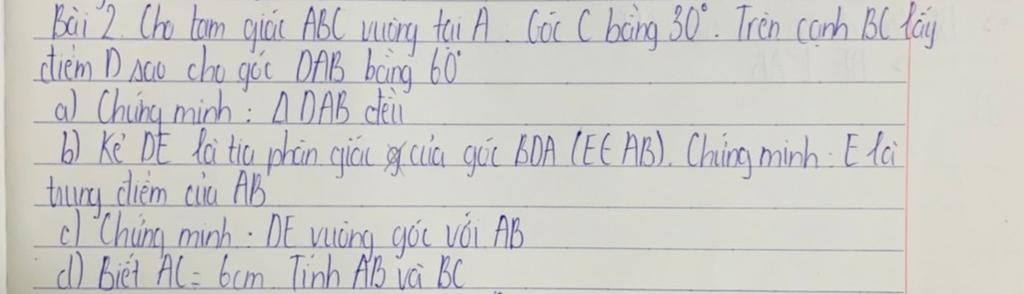 Bài 2. Cho tam giác ABC vuông tại A. Góc C bằng 30°. Trên cạnh BC lấy
điểm D sao cho góc DAB bằng 60°
a) Chứng minh: Δ DAB đều
b) Kẻ DE là tia phân giác của góc BDA (E∈ AB). Chứng minh: E là
trung điểm của AB
c) Chứng minh: DE vuông góc với AB
d) Biết AC = 6cm Tính AB và BC